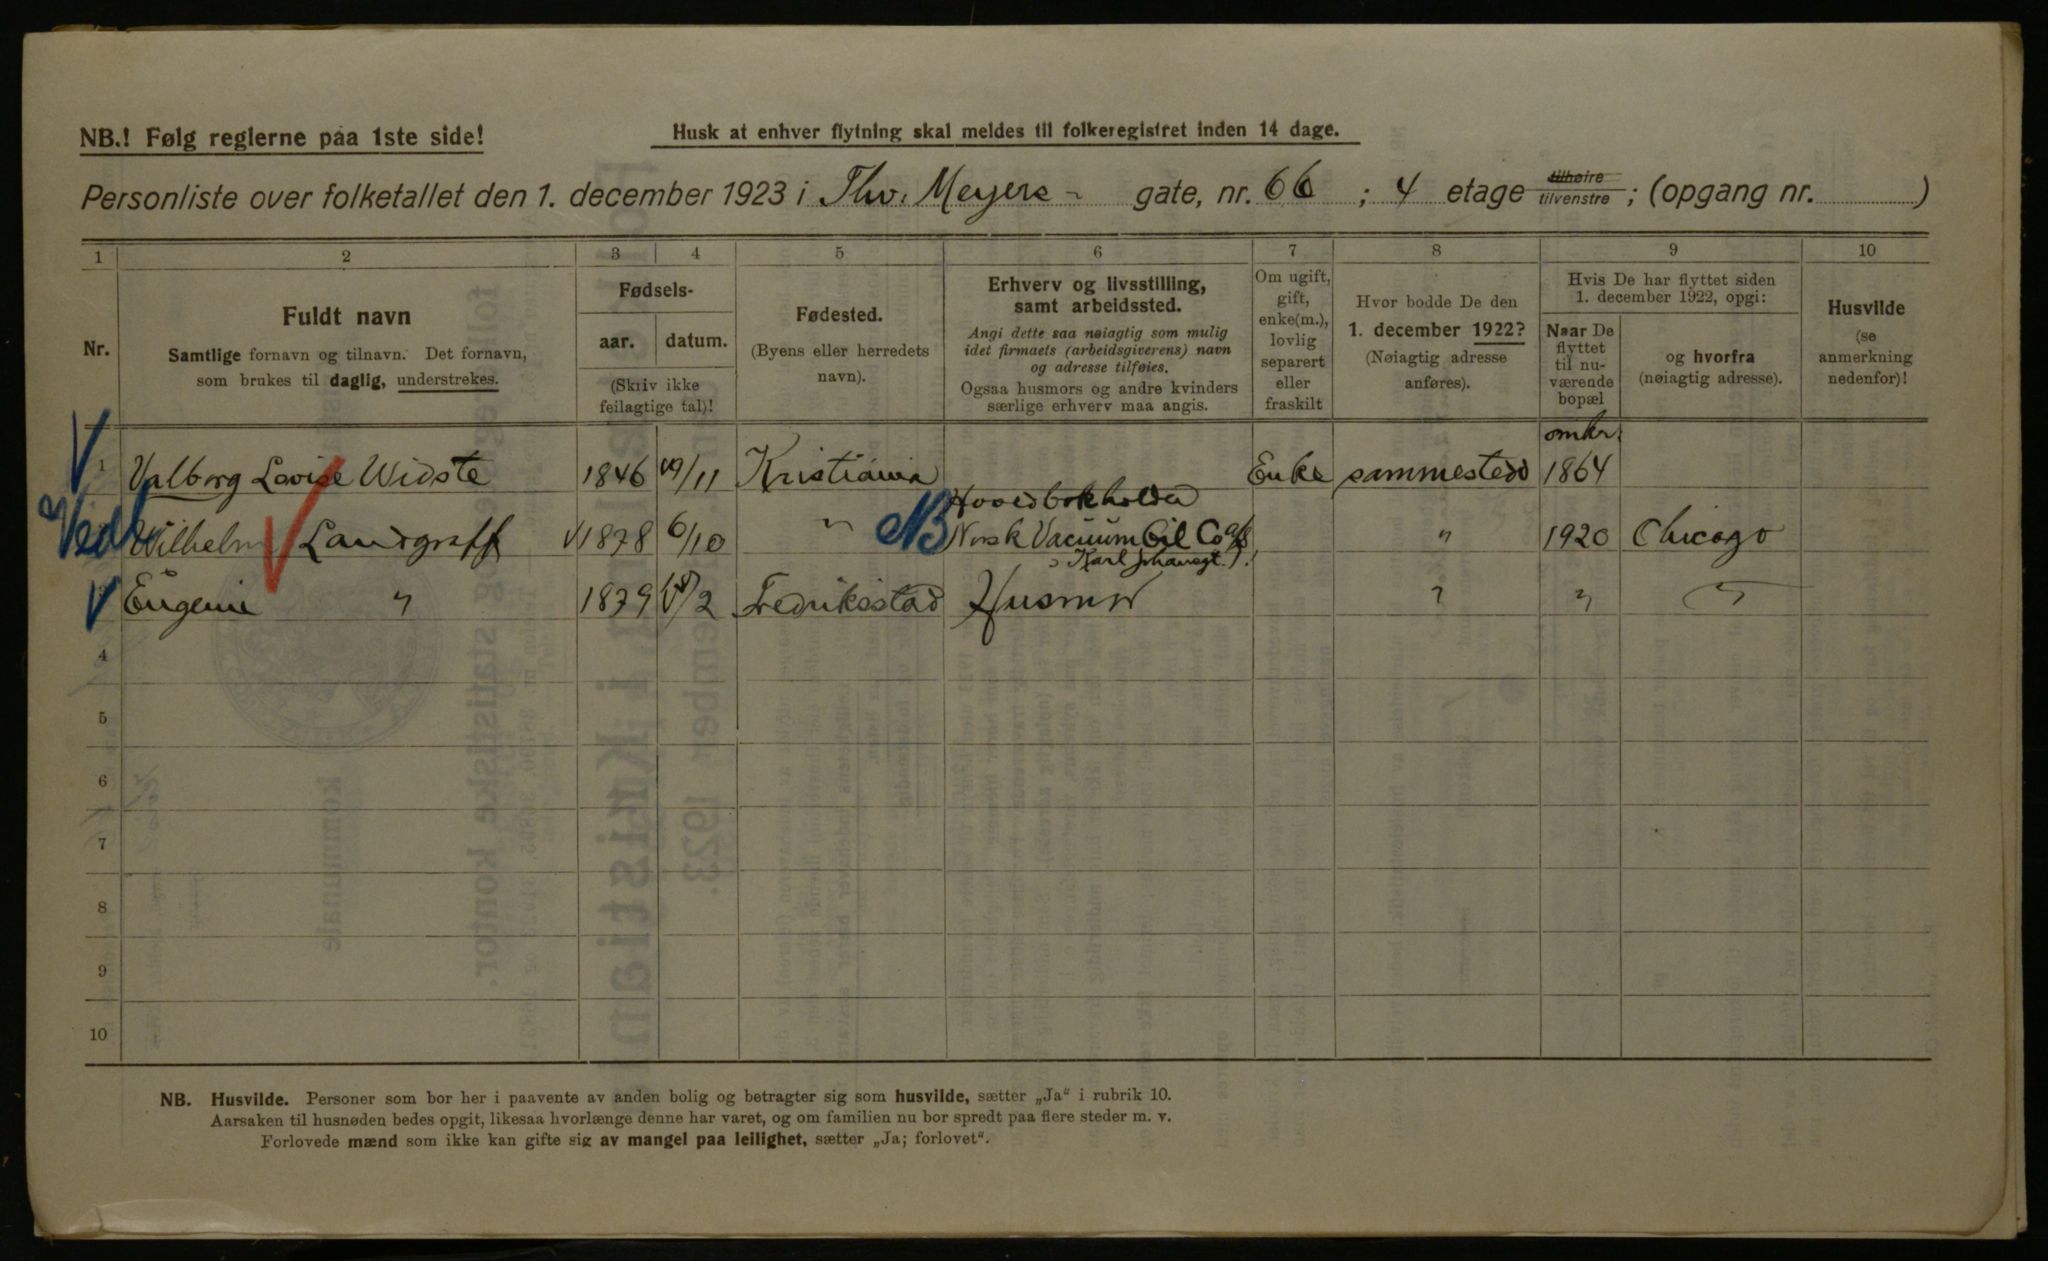 NB.! Følg reglerne paa 1ste side!
Husk at enhver flytning skal meldes til folkeregistret inden 14 dage.
Personliste over folketallet den 1. december 1923 i Thv. Meyers gate, nr. 66 ; 4 etage tilhøire tilvenstre ; (opgang nr. )
1 2 3 4 5 6 7 8 9 10
Nr.
Fuldt navn
Samtlige fornavn og tilnavn. Det fornavn,
som brukes til daglig, understrekes.
Fødsels-
aar. datum.
(Skriv ikke
feilagtige tal)!
Fødested.
(Byens eller herredets
navn).
Erhverv og livsstilling,
samt arbeidssted.
Angi dette saa nøiagtig som mulig
idet firmaets (arbeidsgiverens) navn
og adresse tilføies.
Ogsaa husmors og andre kvinders
særlige erhverv maa angis.
Om ugift,
gift,
enke(m.),
lovlig
separert
eller
fraskilt
Hvor bodde De den
1. december 1922?
(Nøiagtig adresse
anføres).
Hvis De har flyttet siden
1. december 1922, opgi:
Naar De
flyttet
til nu-
værende
bopæl
og hvorfra
(nøiagtig adresse).
Husvilde
(se
anmerkning
nedenfor)!
omkr.
1 Valborg Lovise Widste 1846 19/11 Kristiania Enke sammesteds 1864
Hovedbokholder
Wilhelm Landgraff 1878 6/10 " NB Norsk Vacuum Oil Co a/s " 1920 Chicago
Karl Johansgt.
Eugenie " 1879 /2 Fredriksstad Husmor " " "
4
5
6
7
8
9
10
NB. Husvilde. Personer som bor her i paavente av anden bolig og betragter sig som husvilde, sætter „Ja“ i rubrik 10.
Aarsaken til husnøden bedes opgit, likesaa hvorlænge denne har varet, og om familien nu bor spredt paa flere steder m. v.
Forlovede mænd som ikke kan gifte sig av mangel paa leilighet, sætter „Ja; forlovet“.